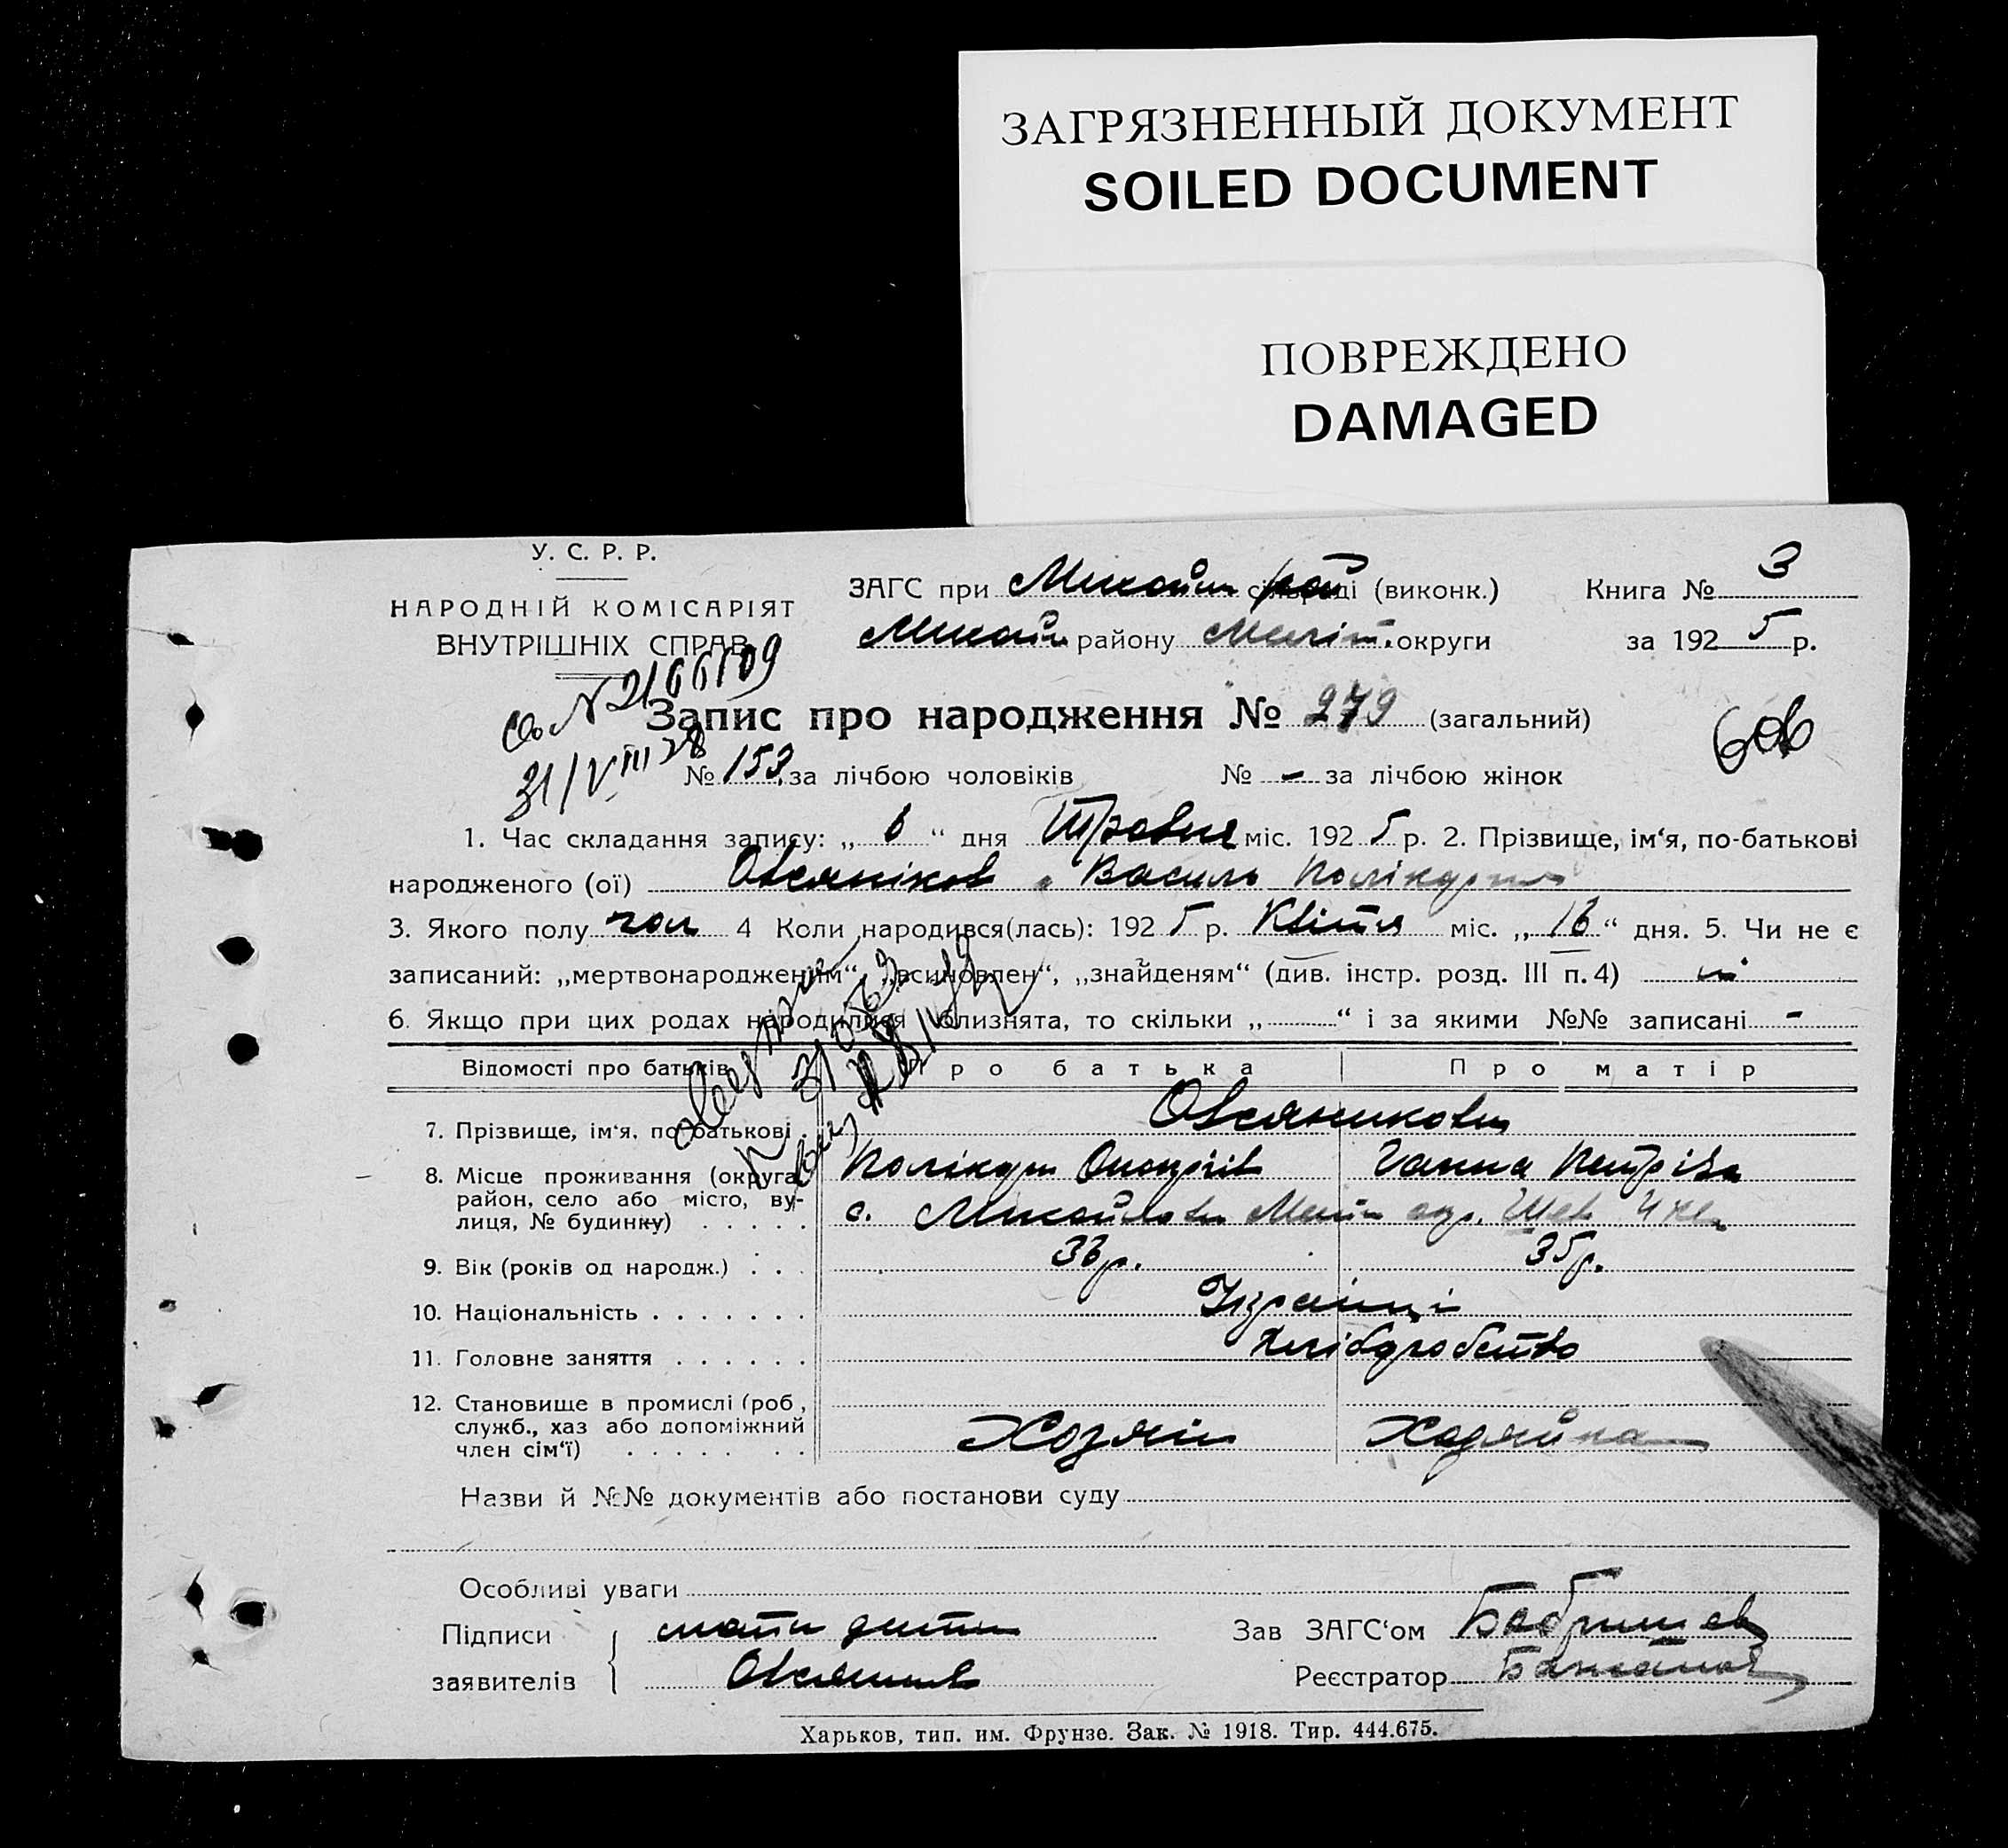 ЗАГРЯЗНЕННЫЙ ДОКУМЕНТ
SOILED DOCUMENT
ПОВРЕЖДЕНО
DAMAGED
У. С. Р. Р.
НАРОДНІЙ КОМІСАРІЯТ
ВНУТРІШНІХ СПРАВ
ЗАГС при Михайл сільраді (виконк.)
Михайл району Меліт. округи
Книга № 3
за 1925 р.
№ 2166109
31/VIII 28
Запис про народження № 279 (загальний)
№ 153 за лічбою чоловіків № - за лічбою жінок
1. Час складання запису: „ 6 “ дня Травня міс. 1925 р. 2. Прізвище, ім‘я, по-батькові
народженого (ої) Овсяніков Василь Полікарп
3. Якого полу чол 4 Коли народився(лась): 1925 р. Квітня міс. „ 16 “ дня. 5. Чи не є
записаний: „мертвонародженим“, „всиновлен“, „знайденям“ (див. інстр. розд. III п. 4) ні
6. Якщо при цих родах народилися близнята, то скільки „ “ і за якими №№ записані -
Відомості про батьків Про батька Про матір
7. Прізвище, ім‘я, по-батькові Овсяникови
Полікарп Онопріїв Ганна Петрівна
8. Місце проживання (округа, район, село або місто, вулиця, № будинку)
с. Михайловка Меліт окр.
9. Вік (років од народж.) 36р. 35р.
10. Національність Українці
11. Головне заняття Хліборобство
12. Становище в промислі (роб, служб., хаз або допоміжний член сім‘ї) Хозяїн Хозяйка
Назви й №№ документів або постанови суду
Особливі уваги
Підписи мати дитини Зав ЗАГС‘ом
заявителів Овсяников Реєстратор
Харьков, тип. им. Фрунзе. Зак. № 1918. Тир. 444.675.